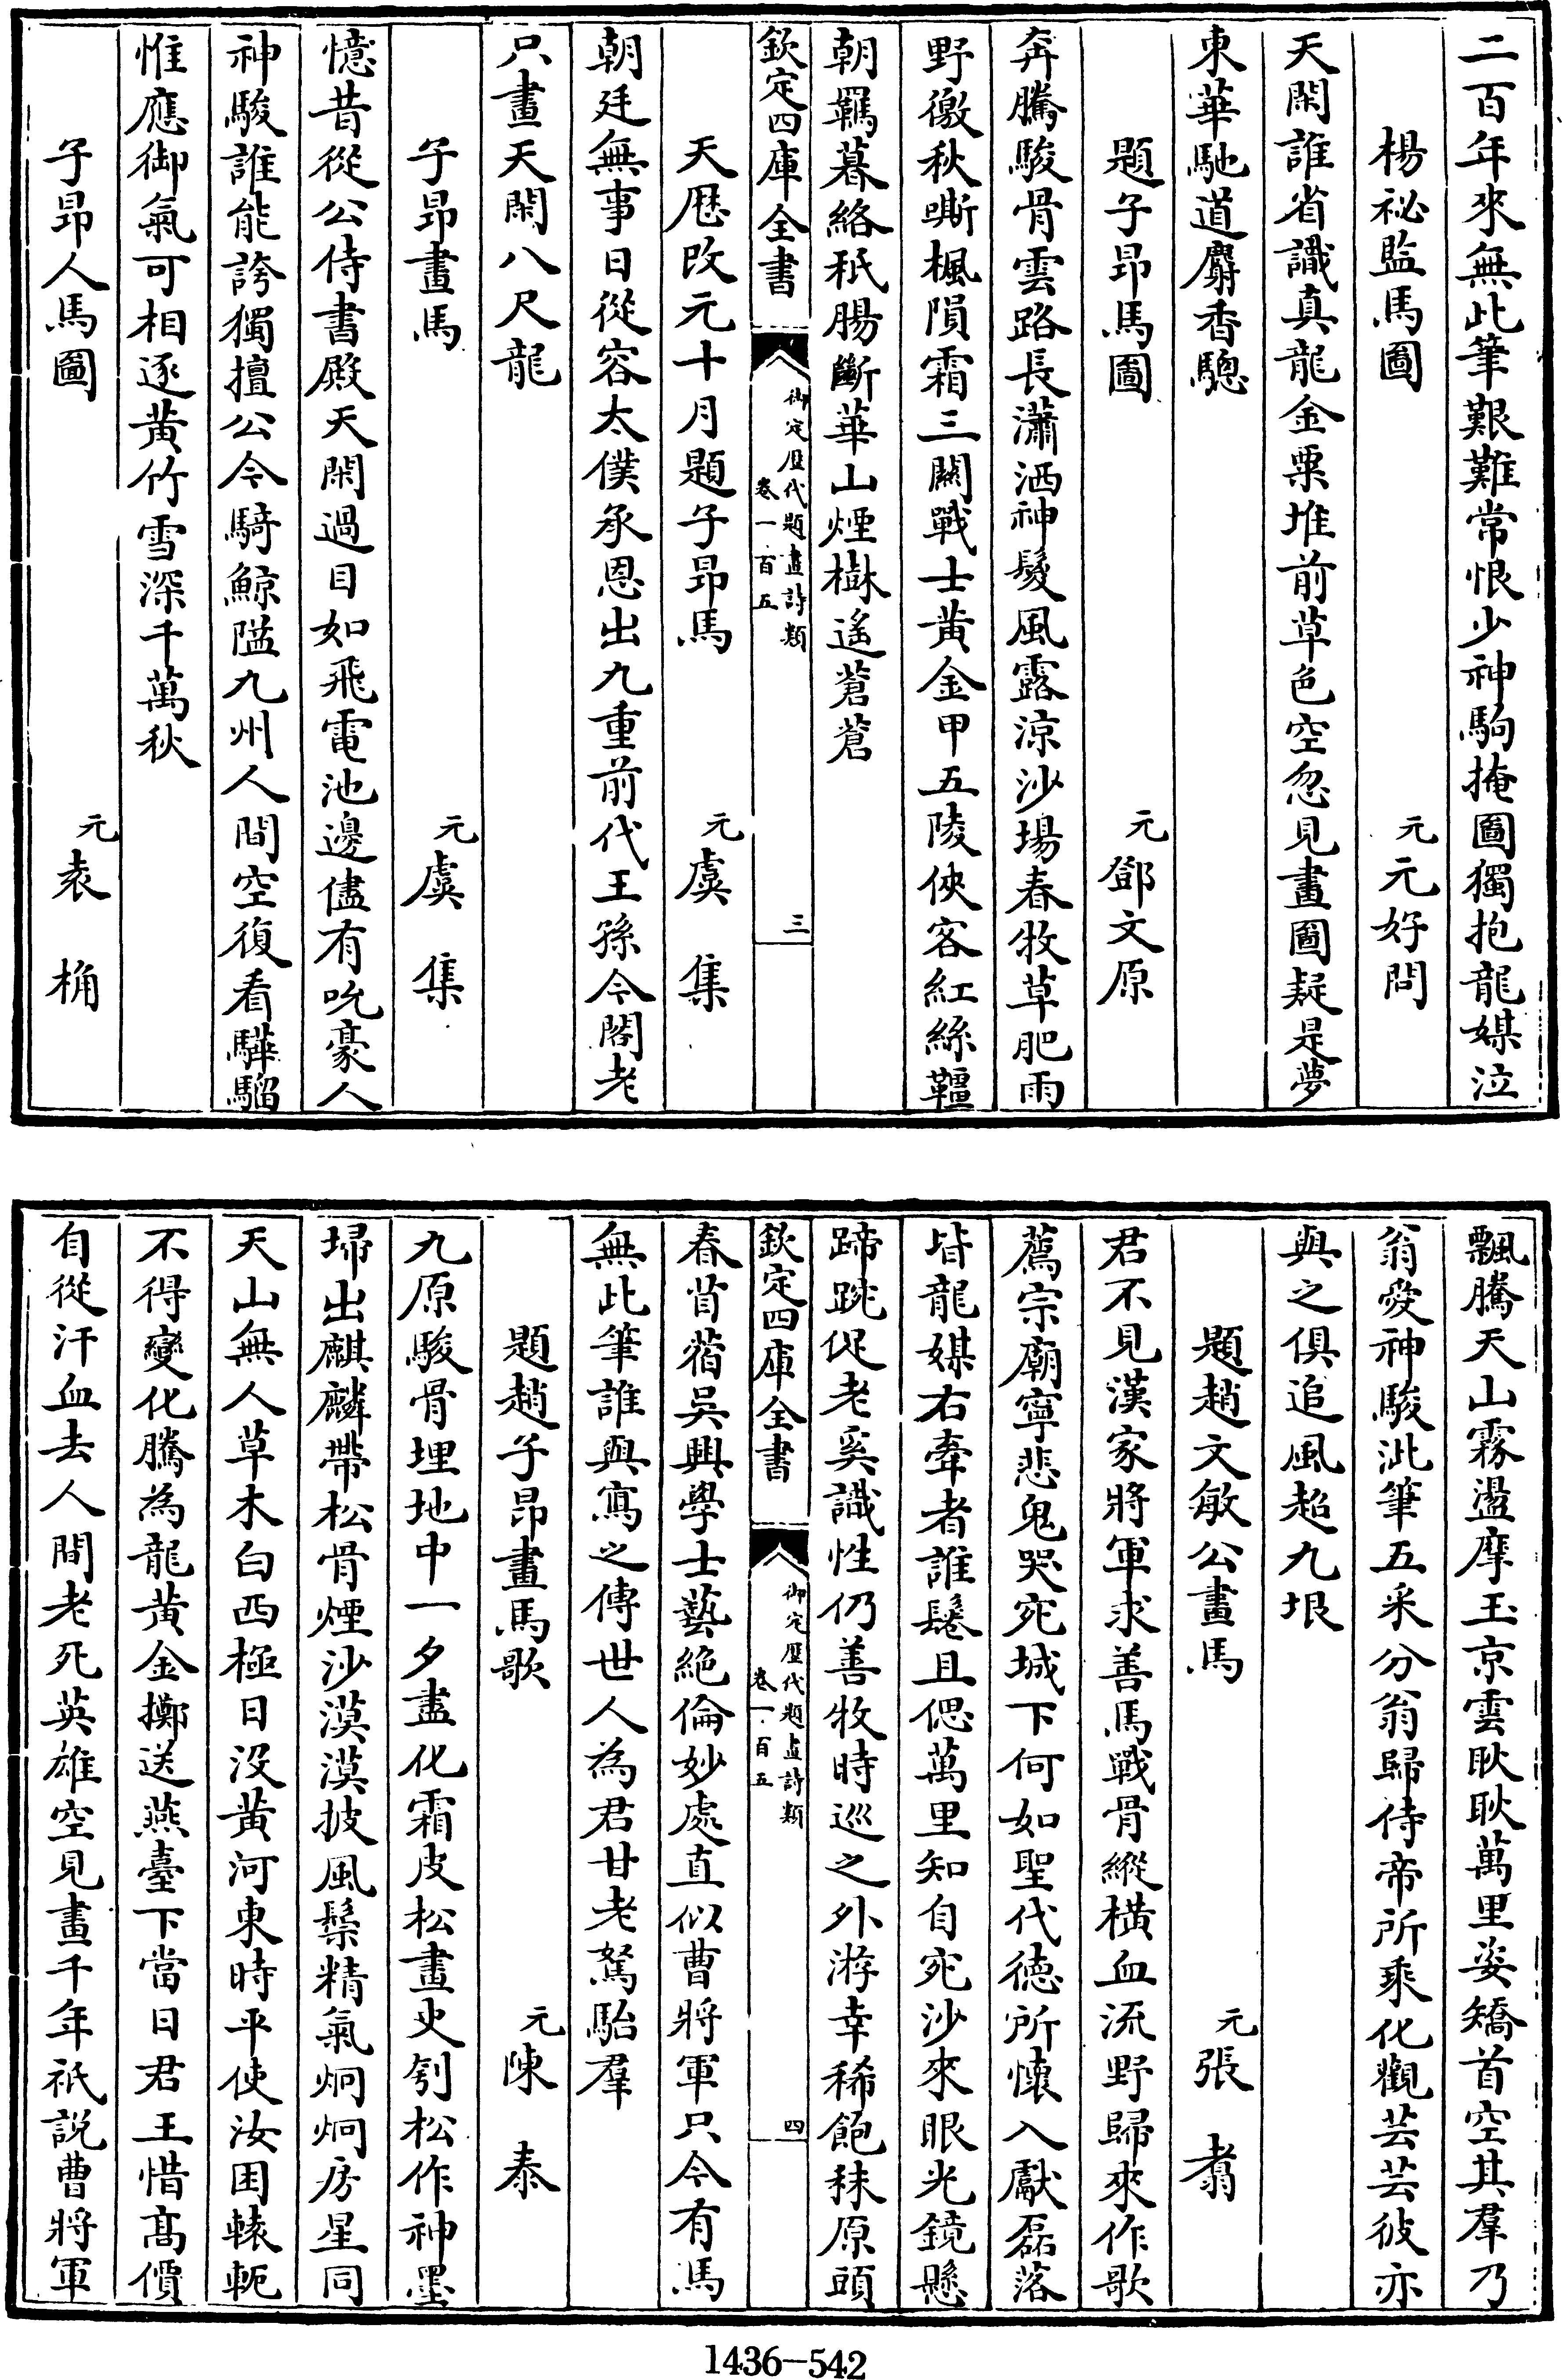 二百年來無此筆艱難常恨少神駒掩圖獨抱龍媒泣
楊祕監馬圖 元元好問
天閑誰省識真龍金粟堆前草色空忽見畫圖疑是夢
東華馳道麝香驄
題子昂馬圖 元鄧文原
奔騰駿骨雲路長瀟洒神鬉風露涼沙場春牧草肥雨
野徼秋嘶楓隕霜三關戰士黃金甲五陵俠客紅絲韁
朝羈暮絡秖腸斷華山煙樹遙蒼蒼
欽定四庫全書
御定歷代題畫詩類
卷一百五
三
天厯改元十月題子昂馬 元虞集
朝廷無事日從容太僕承恩出九重前代王孫今閣老
只畫天閑八尺龍
子昂畫馬 元虞集
憶昔從公侍書殿天閑過目如飛電池邊儘有吮豪人
神駿誰能誇獨擅公今騎鯨隘九州人間空復看驊騮
惟應御氣可相逐黃竹雪深千萬秋
子昂人馬圖 元袁桷
飄騰天山霧盪摩玉京雲耿耿萬里姿矯首空其羣乃
翁愛神駿泚筆五采分翁歸侍帝所乘化觀芸芸彼亦
與之俱追風超九垠
題趙文敏公畫馬 元張翥
君不見漢家將軍求善馬戰骨縱橫血流野歸來作歌
薦宗廟寧悲鬼哭宛城下何如聖代德所懷入獻磊落
皆龍媒右牽者誰髽且偲萬里知自宛沙來眼光鏡懸
蹄踠促老奚識性仍善牧時巡之外游幸稀飽秣原頭
春苜蓿吳興學士藝絕倫妙處直似曹將軍只今有馬
無此筆誰與寫之傳世人為君甘老駑駘羣
欽定四庫全書
御定歷代題畫詩類
卷一百五
四
題趙子昂畫馬歌 元陳泰
九原駿骨埋地中一夕盡化霜皮松畫史刳松作神墨
埽出麒麟帶松骨煙沙漠漠披風鬃精氣炯炯房星同
天山無人草木白西極日没黃河東時平使汝困轅軛
不得變化騰為龍黃金擲送燕臺下當日君王惜高價
自從汗血去人間老死英雄空見畫千年祇說曹將軍
1436-542